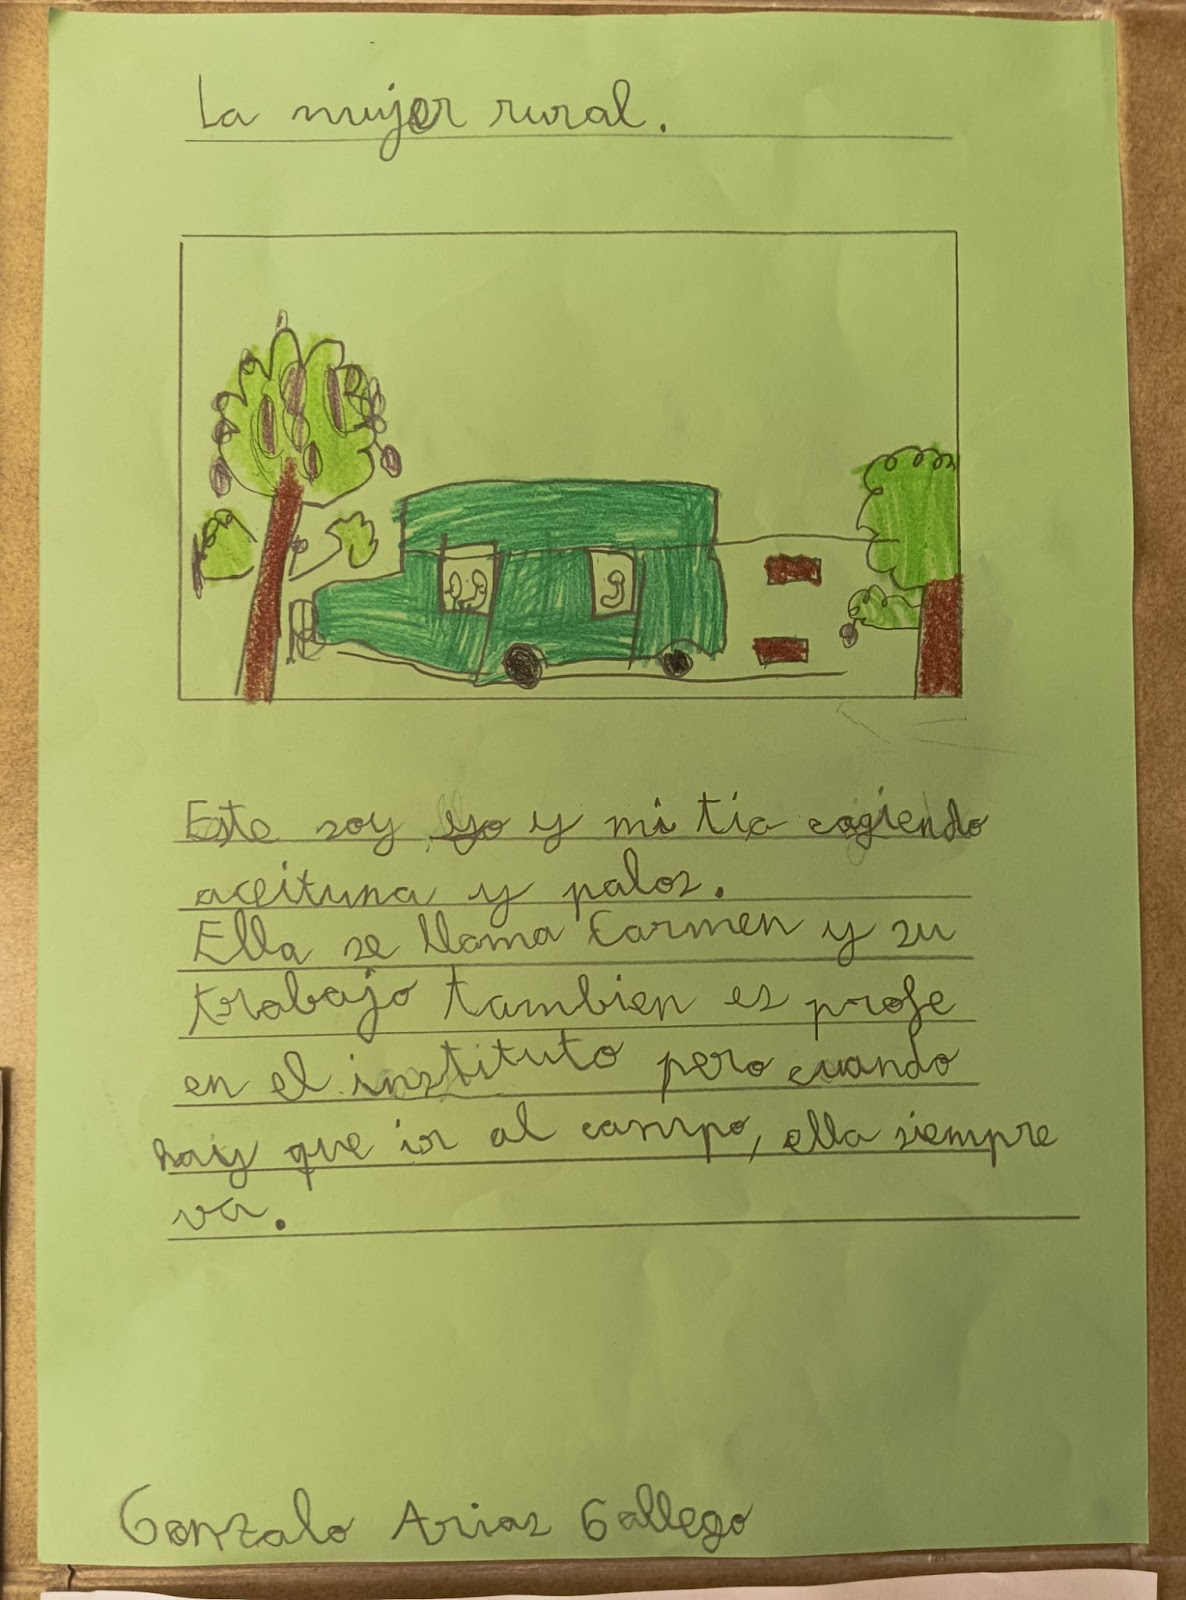 La mujer rural.
Este soy yo y mi tia cogiendo
aceituna y palos.
Ella se llama Carmen y su
trabajo tambien es profe
en el instituto pero cuando
hay que ir al campo, ella siempre
va.
Gonzalo Arias Gallego